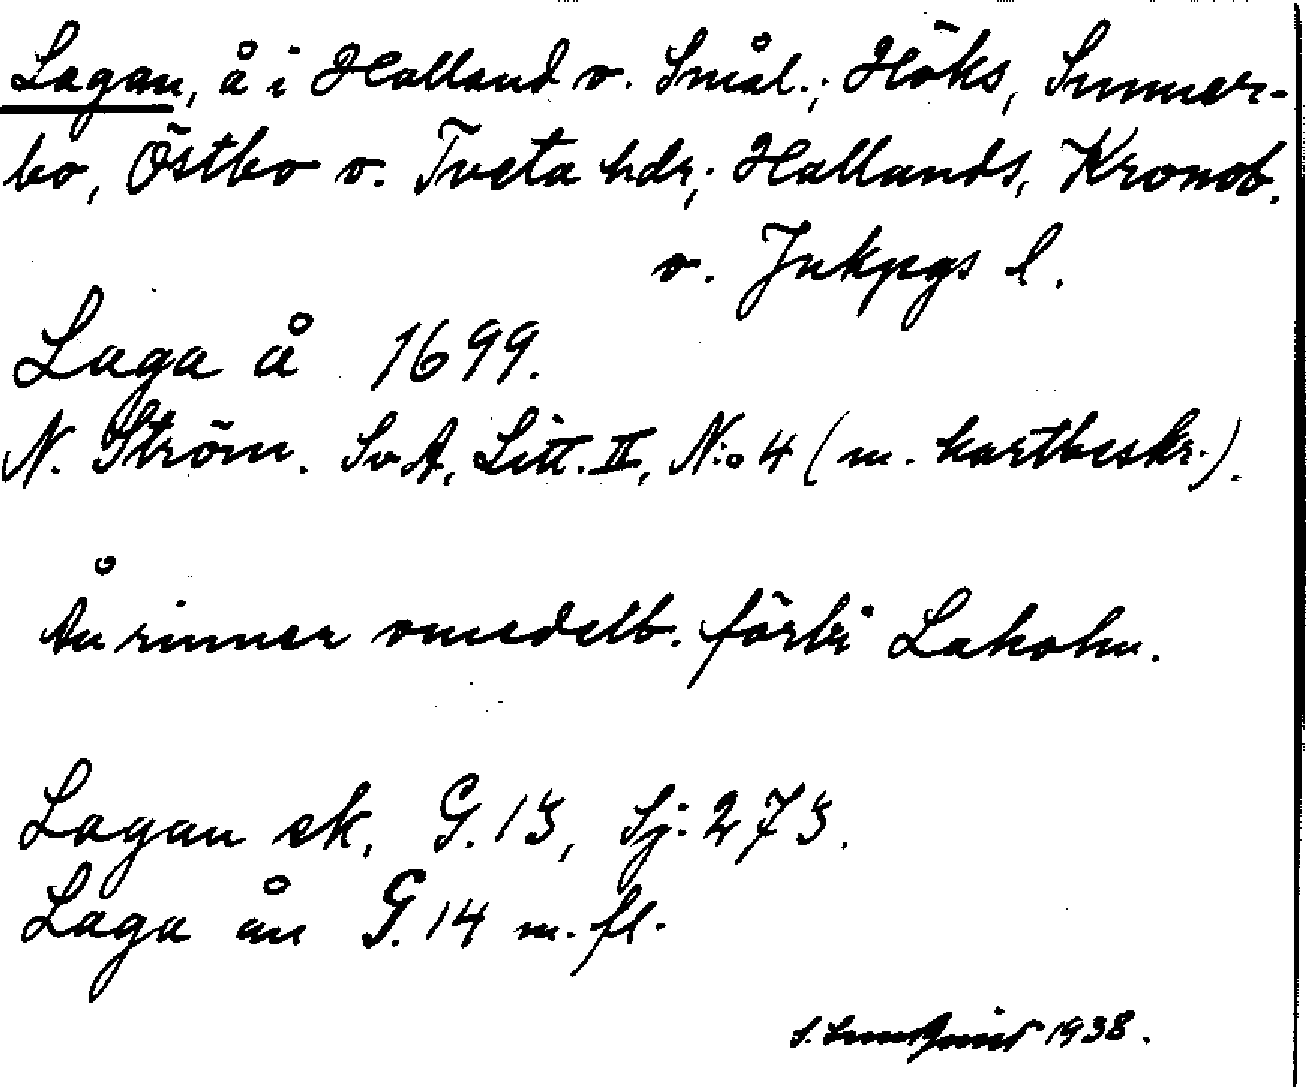 Lagan, å i Halland o. Smål.; Höks, Sunner-
bo, Östbo o. Tveta hdr; Hallands, Kronob.
o. Jnkpgs l.
Laga å 1699.
N. Ström. SvA, Litt. II, N:o 4 (m. kartbeskr.).
Ån rinner omedelb. förbi Laholm.
Lagan ek. G. 13, Sj: 273.
Laga ån G. 14 m. fl.
1938.